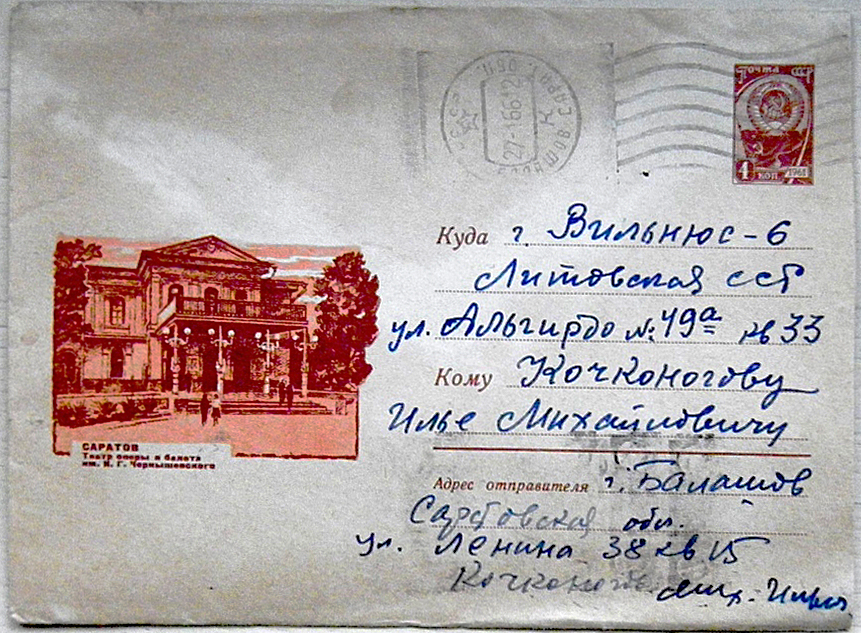 ПОЧТА СССР
4 КОП 1961
САРАТ. ОБЛ.
27-1 66
Куда г. Вильнюс-6
Литовская ССР
ул. Альгирдо №: 49а кв 33
Кому Кочконогову
Илье Михайловичу
САРАТОВ
Театр оперы и балета
им. Н. Г. Чернышевского
Адрес отправителя г. Балашов
Саратовская обл.
ул. Ленина 38 кв 15